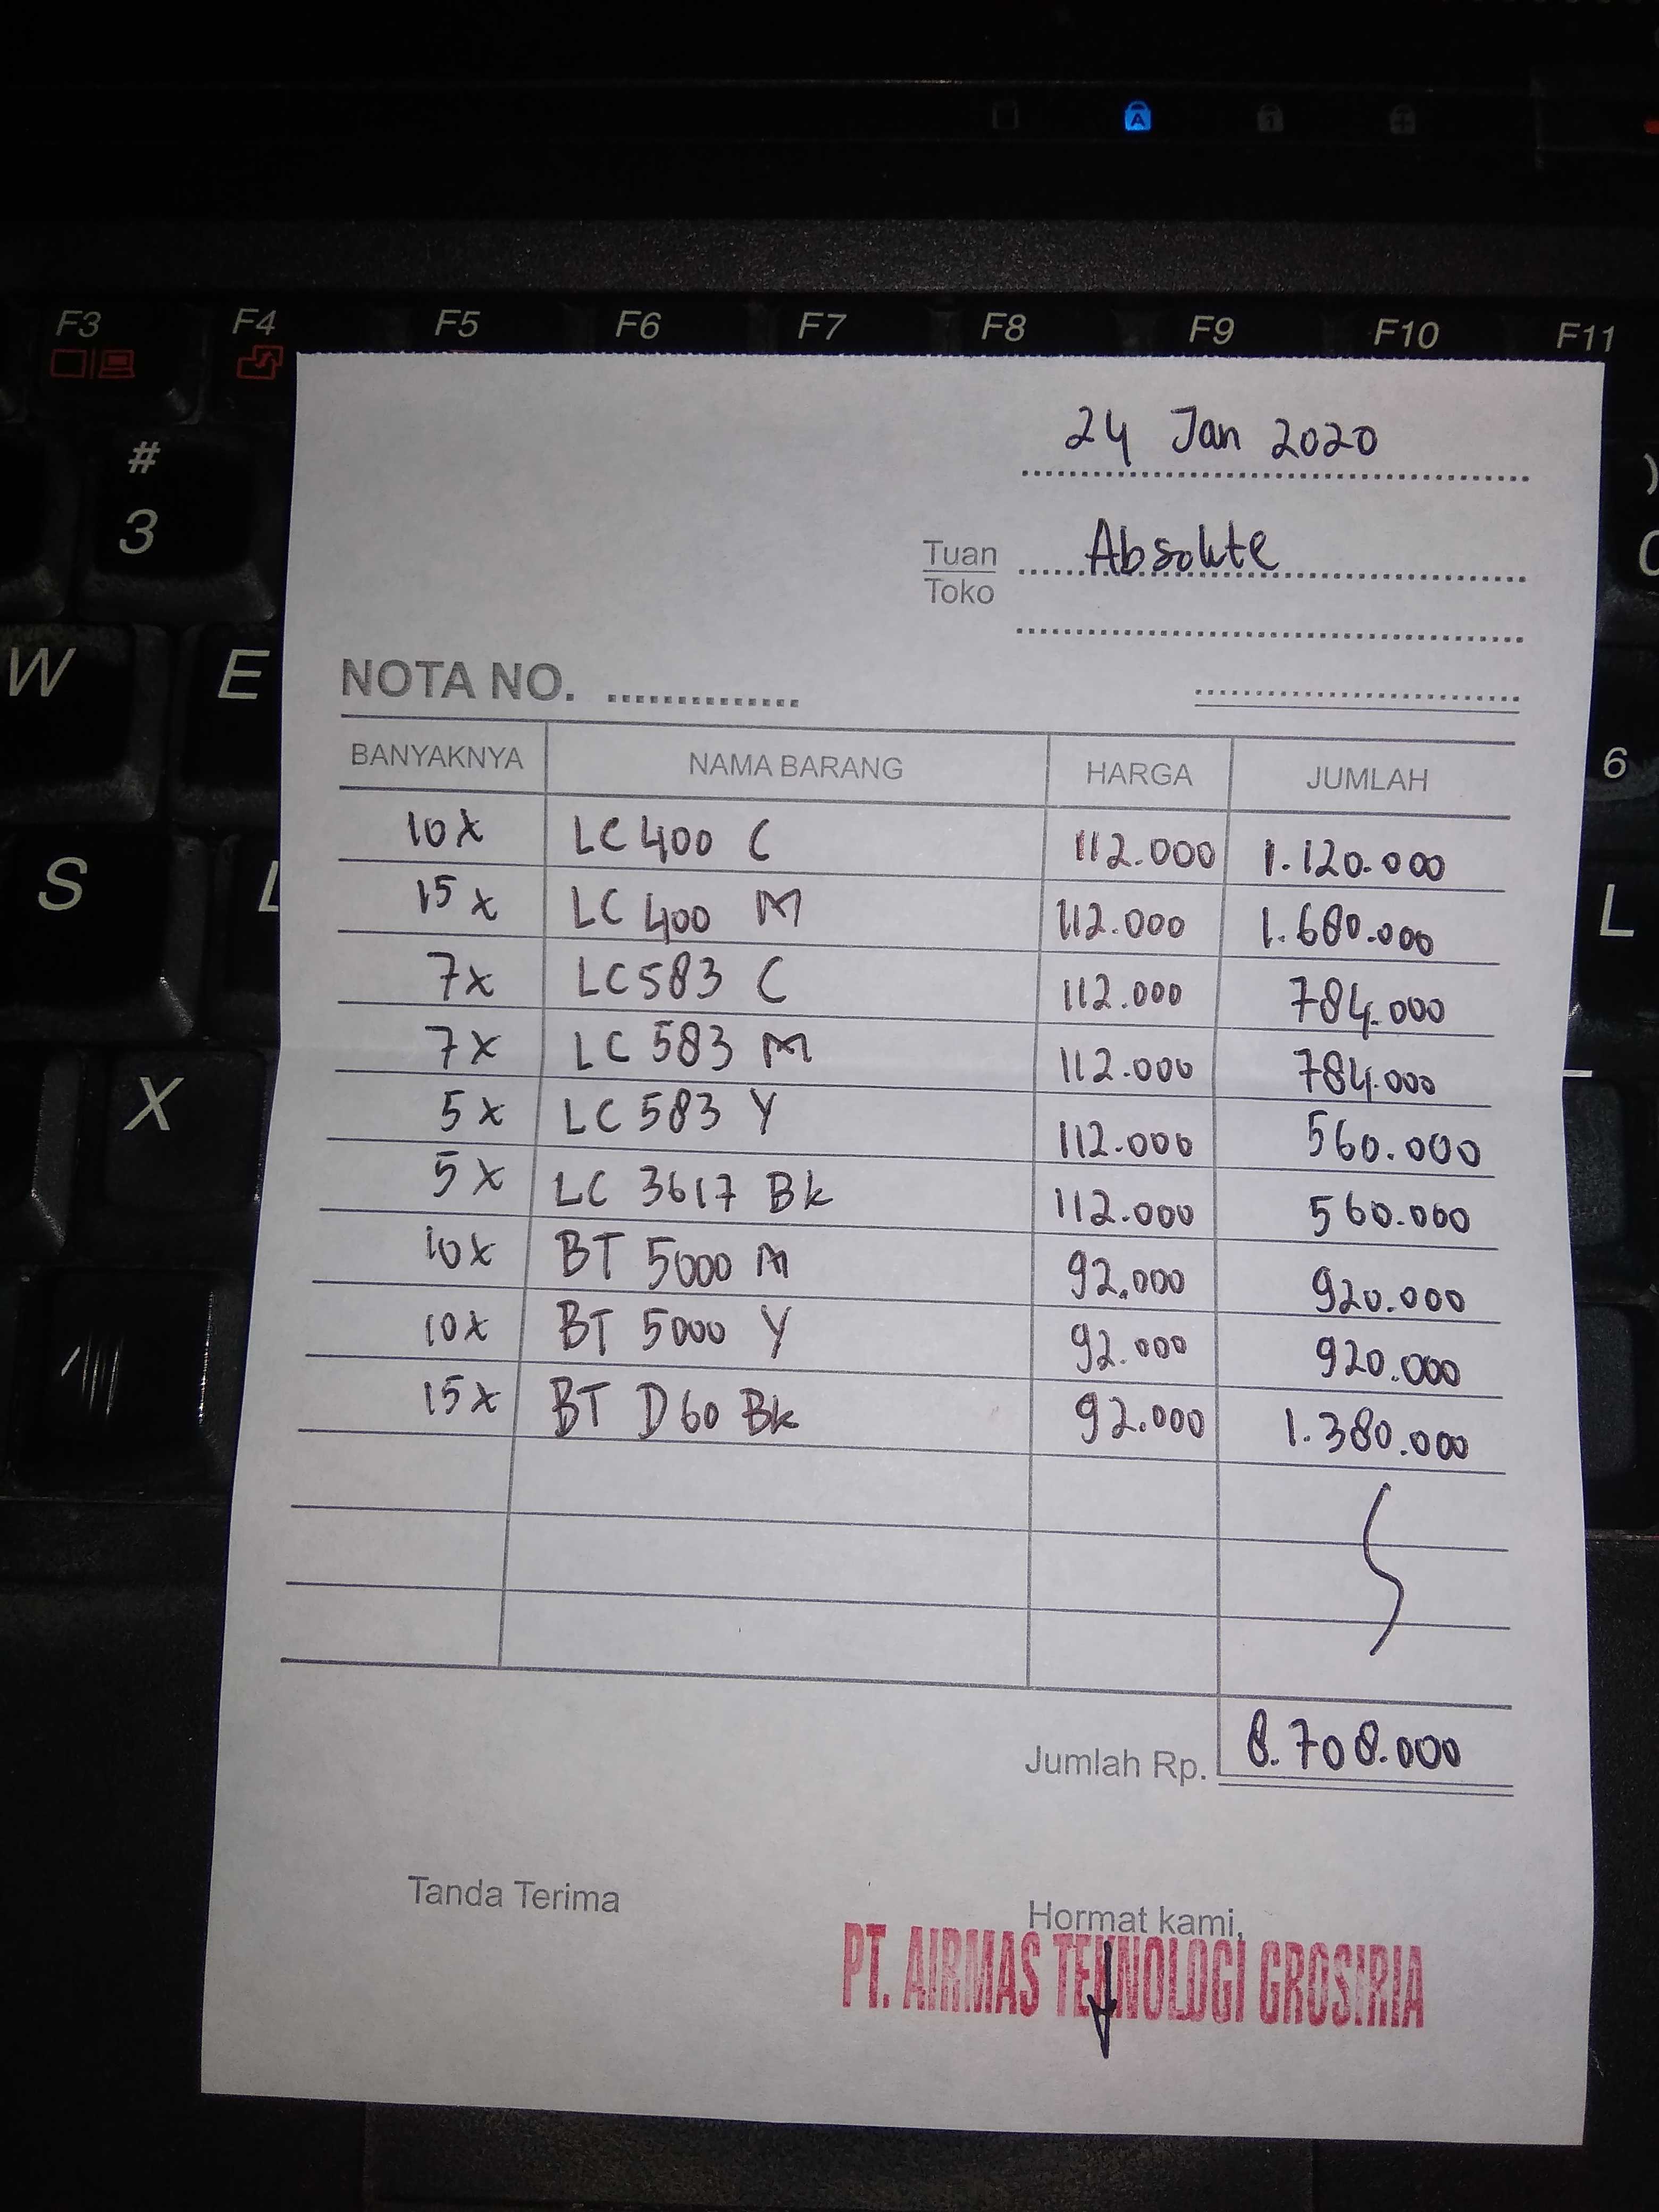 A
1
F3 F4 F5 F6 F7 F8 F9 F10 F11
24 Jan 2020
#
3
)
0
Tuan Absolute
Toko
W E
NOTA NO.
6
BANYAKNYA NAMA BARANG HARGA JUMLAH
10x LC 400 C 112.000 1.120.000
S L
15x LC 400 M 112.000 1.680.000
7x LC 583 C 112.000 784.000
7x LC 583 M 112.000 784.000
X
5x LC 583 Y 112.000 560.000
5x LC 3617 Bk 112.000 560.000
10x BT 5000 M 92.000 920.000
10x BT 5000 Y 92.000 920.000
15x BT D60 Bk 92.000 1.380.000
Jumlah Rp. 8.708.000
Tanda Terima
Hormat kami,
PT. AIRMAS TEKNOLOGI GROSIRIA